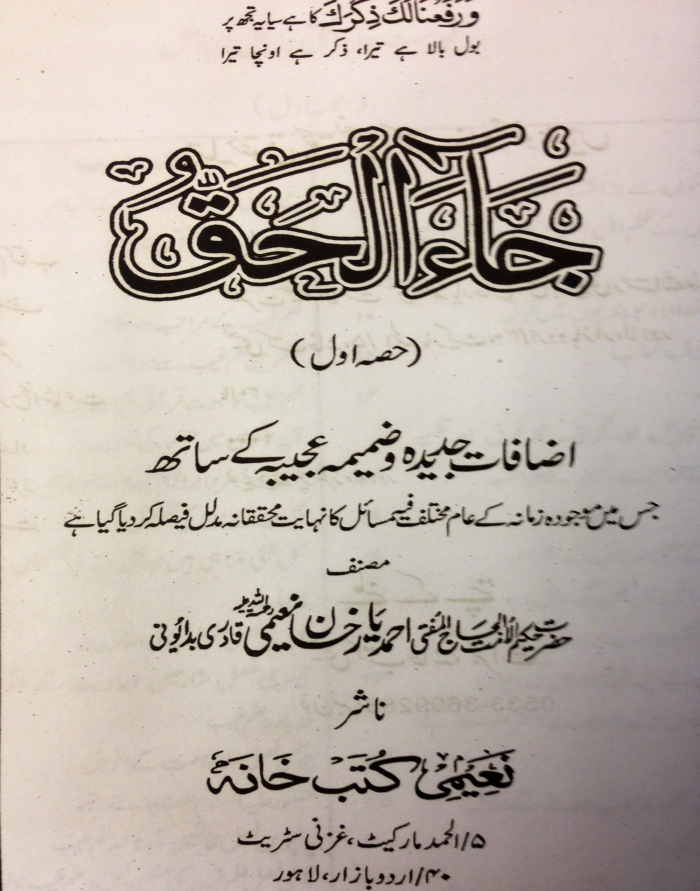 وَرَفَعْنَا لَكَ ذِكْرَكَ کا ہے سایہ تجھ پر
بول بالا ہے تیرا، ذکر ہے اونچا تیرا
جَاءَ الْحَقُّ
(حصہ اول)
اضافات جدیدہ و ضمیمہ عجیبہ کے ساتھ
جس میں موجودہ زمانہ کے عام مختلف فیہ مسائل کا نہایت محققانہ مدلل فیصلہ کر دیا گیا ہے
مصنف
حضرت حکیم الامت الحاج المفتی احمد یار خان نعیمی رحمۃ اللہ علیہ قادری بدایونی
ناشر
نَعِیمِی کُتب خَانَہ
۵/الحمد مارکیٹ، غزنی سٹریٹ
۴۰/اردو بازار، لاہور